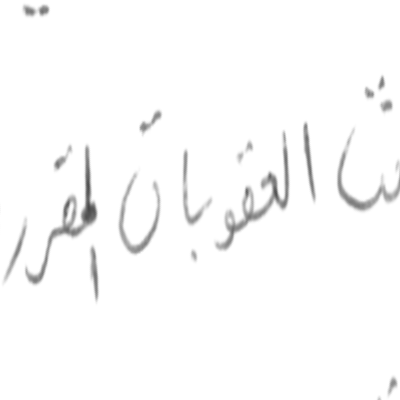 العقوبات المقرر